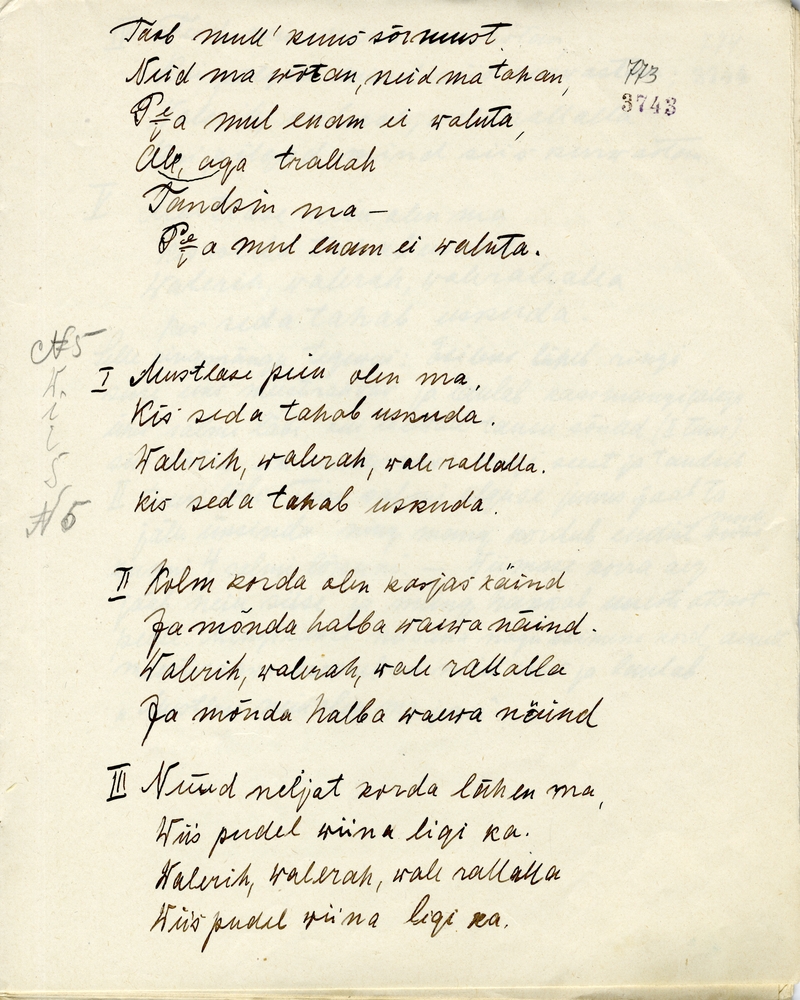 Toob mull' kuus sõrmust.
Neid ma wõtan, neid ma tahan,
773
3743
Pea mul enam ei waluta,
Ale, aga trallah
Tandsin ma –
Pea mul enam ei waluta.
№5
I Mustlase poeu olen ma,
Kis seda tahab uskuda.
Walerih, walerah, wale rallalla.
kis seda tahab uskuda.
№5
II Kolm korda olen kosjas käind
Ja mõnda halba waewa näind.
Walerih, walerah, wale rallalla
Ja mõnda halba waewa näind
III Nüüd neljat korda lähen ma,
Wiis pudel wiina ligi ka.
Walerih, walerah, wale rallalla
Wiis pudel wiina ligi ka.